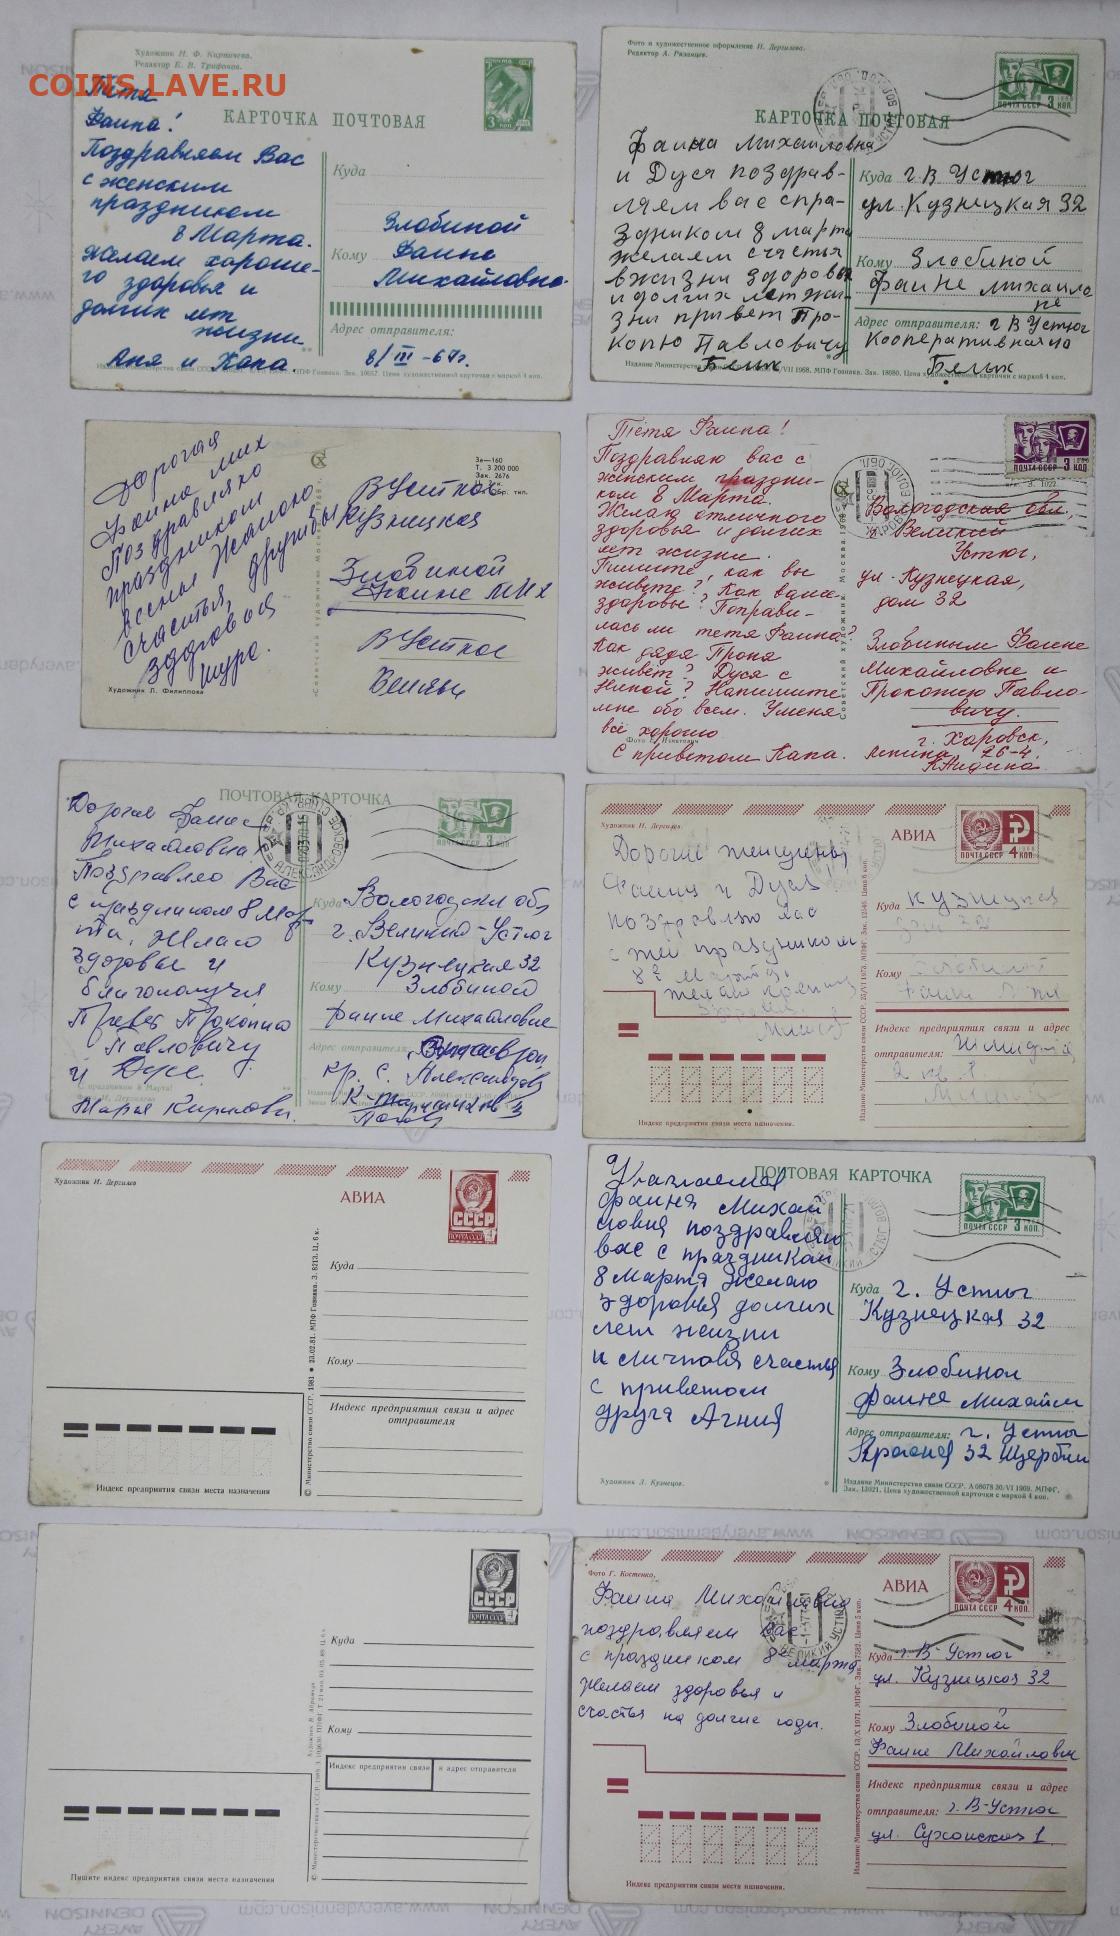 COINS.LAVE.RU
Художник Н. Ф. Киртичева.
Редактор Е. В. Трифонов.
КАРТОЧКА ПОЧТОВАЯ
Тётя
Фаина!
Поздравляем Вас
с женским
праздником
8 Марта.
Желаем хороше-
го здоровья и
долгих лет
жизни
Аня и Капа.
Куда
Злобиной
Кому Фаине
Михайловне.
Адрес отправителя:
8/III-67г.
Фото и художественное оформление И. Дергилева.
Редактор А. Рязанцев.
ПОЧТА СССР 3 КОП.
КАРТОЧКА ПОЧТОВАЯ
Фаина Михайловна
и Дуся поздрав-
ляем вас спра-
здником 8 марта
желаем счастья
в жизни здоровья
и долгих лет жи-
зни привет Про-
копю Павловичу
Белых
Куда г В Устюг
ул. Кузнецкая 32
Кому Злобиной
Фаине михайло
не
Адрес отправителя: г В Устюг
Кооперативная
Белых
Дорогая
Фаина Мих
Поздравляю
праздником
весны Желаю
счастья, дружбы
здоровья
Шура.
Художник Л. Филиппова
За—160
Т. 3 200 000
Зак. 2676
В Устюг
Кузнецкая
Злобиной
Фаине Мих
В Устюг
Тётя Фаина!
Поздравляю вас с
женским праздни-
ком 8 Марта.
Желаю отличного
здоровья и долгих
лет жизни.
Пишите, как вы
живете? Как ваше
здоровье? Поправи-
лась ли тетя Фаина?
Как дядя Проня
живет? Дуся с
Ниной? Напишите
мне обо всем. У меня
всё хорошо
С приветом Капа.
Советский художник Москва 1969
ПОЧТА СССР 3 КОП.
Вологодская обл,
Великий
Устюг,
ул. Кузнецкая,
дом 32
Злобиным Фаине
Михайловне и
Прокопию Павло-
вичу.
г. Харовск,
Ленина 26-4.
ПОЧТОВАЯ КАРТОЧКА
Дорогая Фаина
Михайловна.
Поздравляю Вас
с праздником 8 Мар-
та. Желаю
здоровья и
благополучия
Привет Прокопию
Павловичу
и Дусе.
С праздником 8 Марта!
Фото И. Дергилева
Куда Вологодская обл
г. Великий-Устюг
Кузнецкая 32
Кому Злобиной
Фаине Михайловне
Адрес отправителя:
Художник И. Дергилев.
АВИА
ПОЧТА СССР 4 КОП.
Дорогие женщины
Фаина и Дуся
поздравляю вас
с жен праздником
8е Марта.
желаю
Куда Кузнецкая
Кому
Индекс предприятия связи и адрес
отправителя:
Индекс предприятия связи места назначения.
Художник И. Дергилев
АВИА
СССР
ПОЧТА СССР
Куда
Кому
Индекс предприятия связи и адрес
отправителя
Индекс предприятия связи места назначения
© Министерство связи СССР, 1981 • 23.02.81. МПФ Гознака. З. 8213. Ц. 6 к.
ПОЧТОВАЯ КАРТОЧКА
ПОЧТА СССР 3 КОП.
Уважаемая
Фаиня Михай
ловня поздравляю
вас с праздником
8 Мартя желаю
здоровья долгих
лет жизни
и личновя счастья
с приветом
друга Агния
Художник Л. Кузнецов.
Куда г. Устюг
Кузнецкая 32
Кому Злобиной
Фаине Михайл
Адрес отправителя: г. Устюг
Красная 32 Щербин
Издание Министерства связи СССР. А 08078 30/VI 1969. МПФГ.
Зак. 13021. Цена художественной карточки с маркой 4 коп.
СССР
Куда
Кому
Индекс предприятия связи и адрес отправителя
Пишите индекс предприятия связи места назначения
Фото Г. Костенко.
АВИА
ПОЧТА СССР 4 КОП.
Фаина Михайловна
поздравляем Вас
с праздником 8е марта
желаем здоровья и
счастья на долгие годы.
Куда г. В-Устюг
ул. Кузнецкая 32
Кому Злобиной
Фаине Михайловн
Индекс предприятия связи и адрес
отправителя: г. В-Устюг
ул. Сухонская 1.
Индекс предприятия связи места назначения.